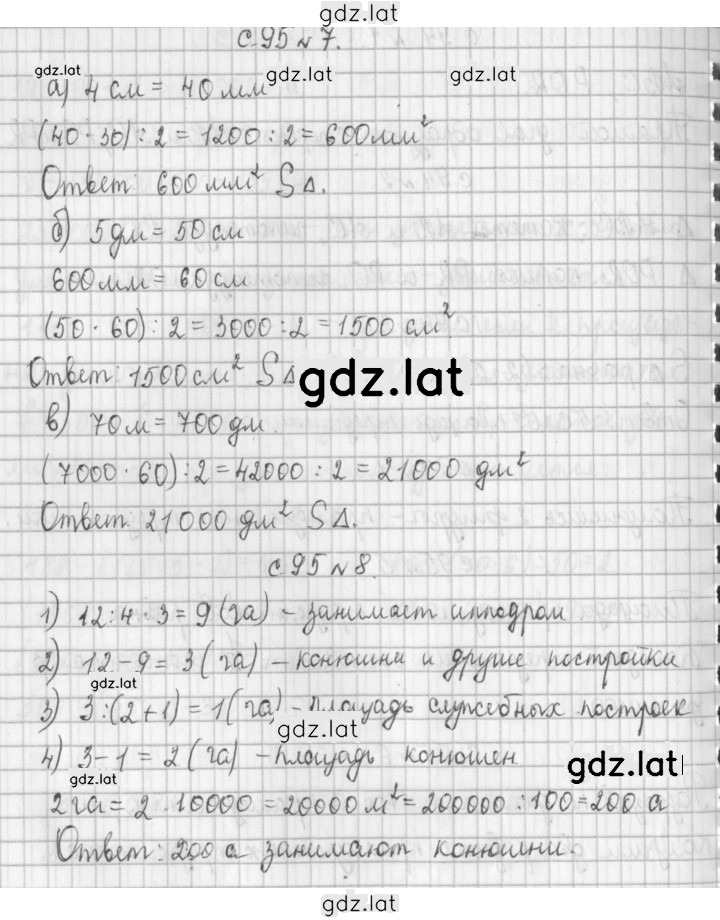 gdz.lat
с. 95 № 7.
gdz.lat gdz.lat gdz.lat
а) 4 см = 40 мм
(40 · 30) : 2 = 1200 : 2 = 600 мм²
Ответ: 600 мм² S Δ.
б) 5 дм = 50 см
600 мм = 60 см
(50 · 60) : 2 = 3000 : 2 = 1500 см²
Ответ: 1500 см² S Δ
gdz.lat
в) 70 м = 700 дм.
(7000 · 60) : 2 = 42000 : 2 = 21000 дм²
Ответ: 21000 дм² S Δ.
с. 95 № 8.
1) 12 : 4 · 3 = 9 (га) – занимает ипподром
2) 12 – 9 = 3 (га) – конюшни и другие постройки
gdz.lat
3) 3 : (2 + 1) = 1 (га) – площадь служебных построек
gdz.lat
4) 3 – 1 = 2 (га) – площадь конюшен
gdz.lat gdz.lat
2 га = 2 · 10000 = 20000 м² = 200000 : 100 = 200 а
Ответ: 200 а занимают конюшни.
gdz.lat